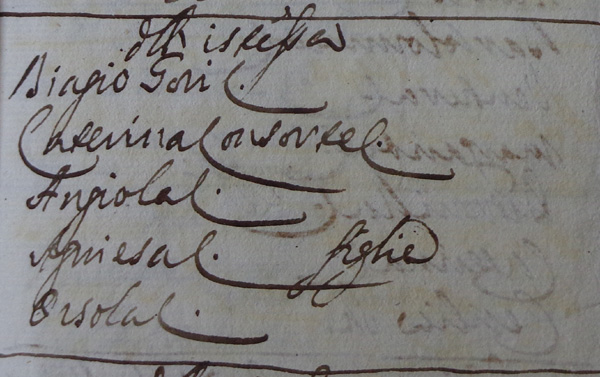 dlk istessa
Biagio Gori C.
Caterina Consorte C.
Angiola C.
Agniesa C. figlie
Orsola C.